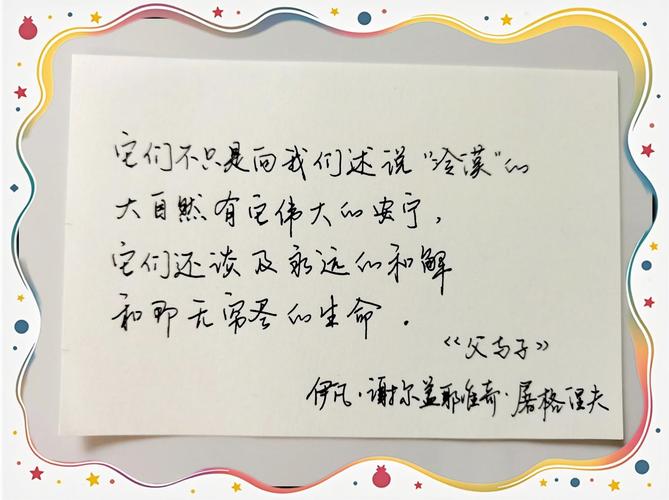 它们不只是向我们述说“冷漠”的
大自然有它伟大的安宁，
它们还谈及永远的和解
和那无穷尽的生命．
《父与子》
伊凡·谢尔盖耶维奇·屠格涅夫